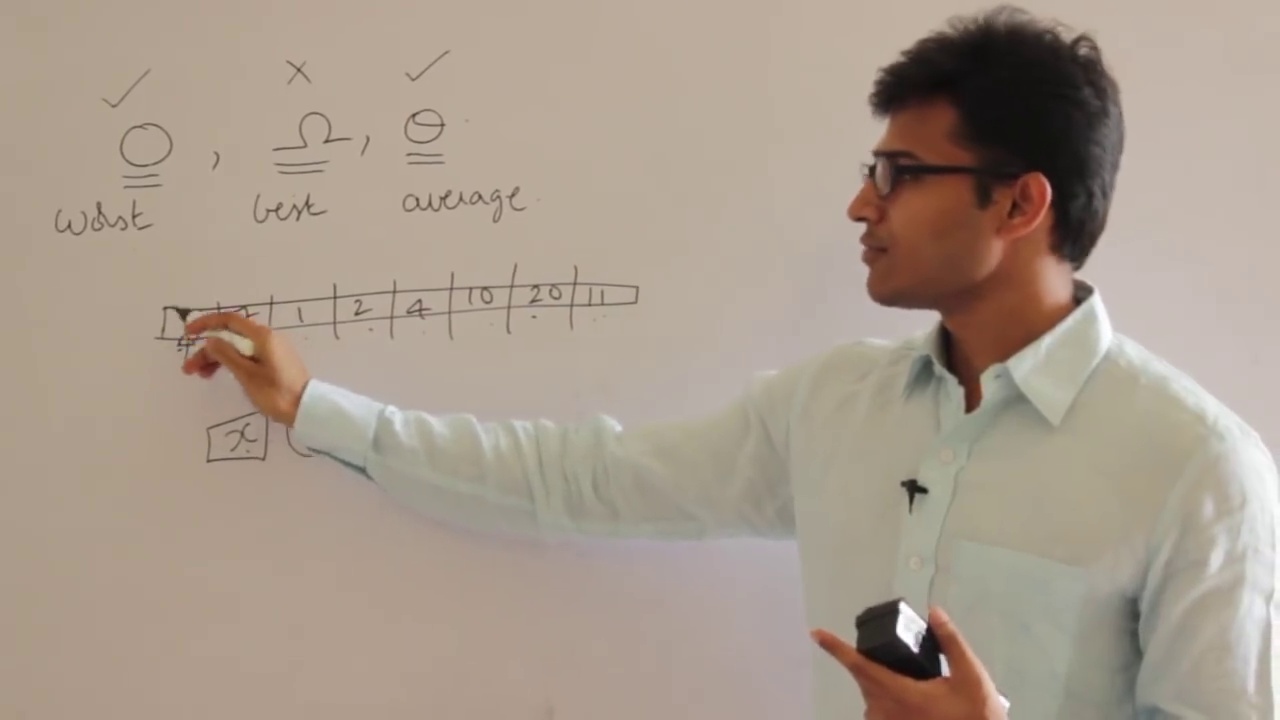 ✓ × ✓
O , Ω , Θ
worst best average
1 2 4 10 20 11
x